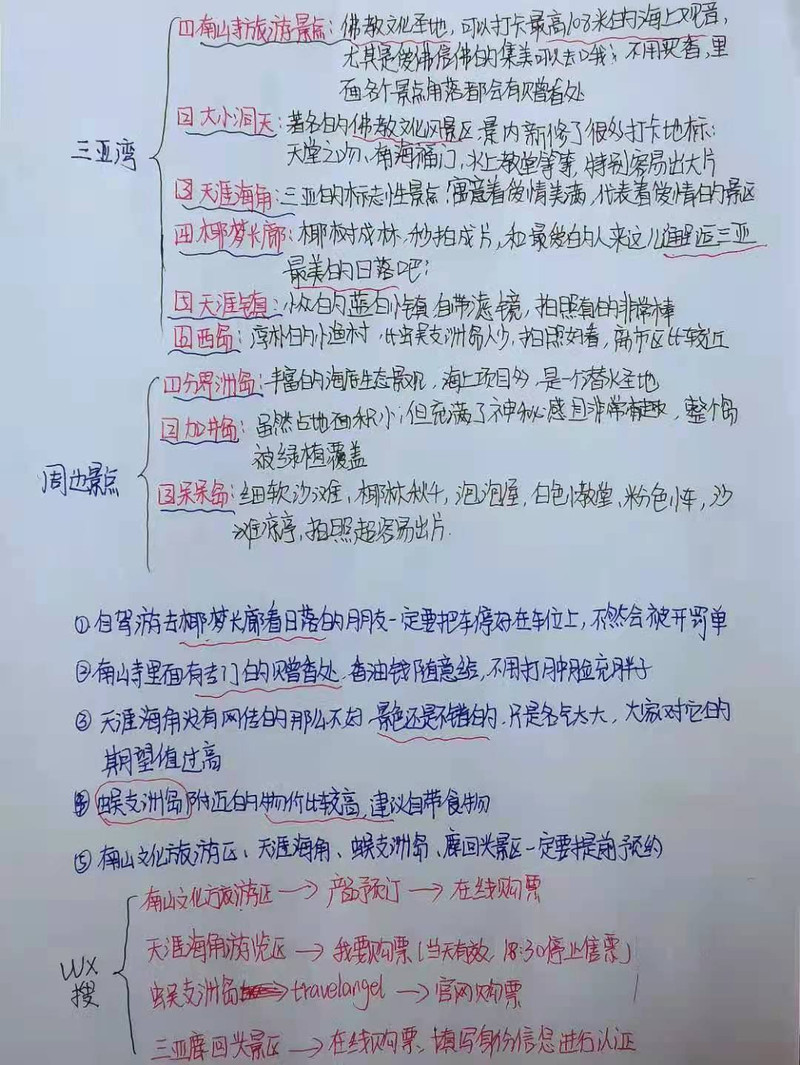 三亚湾
①南山寺旅游景点：佛教文化圣地，可以打卡最高108米的海上观音，
尤其是爱佛信佛的集美可以去哦；不用买香，里
面各个景点角落都会有赠香处
②大小洞天：著名的佛教文化风景区，景内新修了很多打卡地标：
天堂之吻、南海福门、水上教堂等等，特别容易出大片
③天涯海角：三亚的标志性景点，寓意着爱情美满，代表着爱情的景区
④椰梦长廊：椰树成林，秒拍成片，和最爱的人来这儿邂逅三亚
最美的日落吧！
⑤天涯镇：小众的蓝白小镇，自带滤镜，拍照真的非常棒
⑥西岛：淳朴的小渔村，比蜈支洲岛人少，拍照好看，离市区比较近
周边景点
①分界洲岛：丰富的海底生态景观，海上项目多，是一个潜水圣地
②加井岛：虽然占地面积小；但充满了神秘感且非常有趣，整个岛
被绿植覆盖
③呆呆岛：细软沙滩，椰林秋千，泡泡屋，白色小教堂、粉色小车，沙
滩凉亭，拍照超容易出片.
①自驾游去椰梦长廊看日落的朋友一定要把车停好在车位上，不然会被开罚单
②南山寺里面有专门的赠香处，香油钱随意给，不用打肿脸充胖子
③天涯海角没有网传的那么不好，景色还是不错的，只是名气太大，大家对它的
期望值过高
④蜈支洲岛附近的物价比较高，建议自带食物
⑤南山文化旅游区、天涯海角、蜈支洲岛、鹿回头景区一定要提前预约
WX
搜
南山文化旅游区→产品预订→在线购票
天涯海角游览区→我要购票（当天有效，18:30停止售票）
蜈支洲岛→travelangel→官网购票
三亚鹿回头景区→在线购票、填写身份信息进行认证